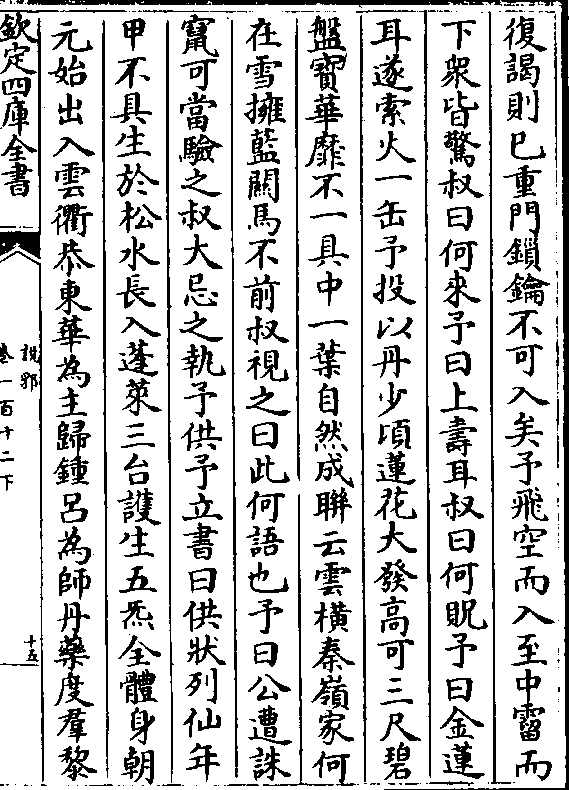 復謁則已重門鎖鑰不可入矣予飛空而入至中霤而
下衆皆驚叔曰何來予曰上壽耳叔曰何貺予曰金蓮
耳遂索火一缶予投以丹少頃蓮花大發高可三尺碧
盤寳華靡不一具中一葉自然成聯云雲橫秦嶺家何
在雪擁藍關馬不前叔視之曰此何語也予曰公遭誅
竄可當驗之叔大忌之執予供予立書曰供狀列仙年
甲不具生於松水長入蓬萊三台護生五炁全體身朝
元始出入雲衢恭東華為主歸鍾呂為師丹藥度羣黎
欽定四庫全書
說郛
卷一百十二下
十五